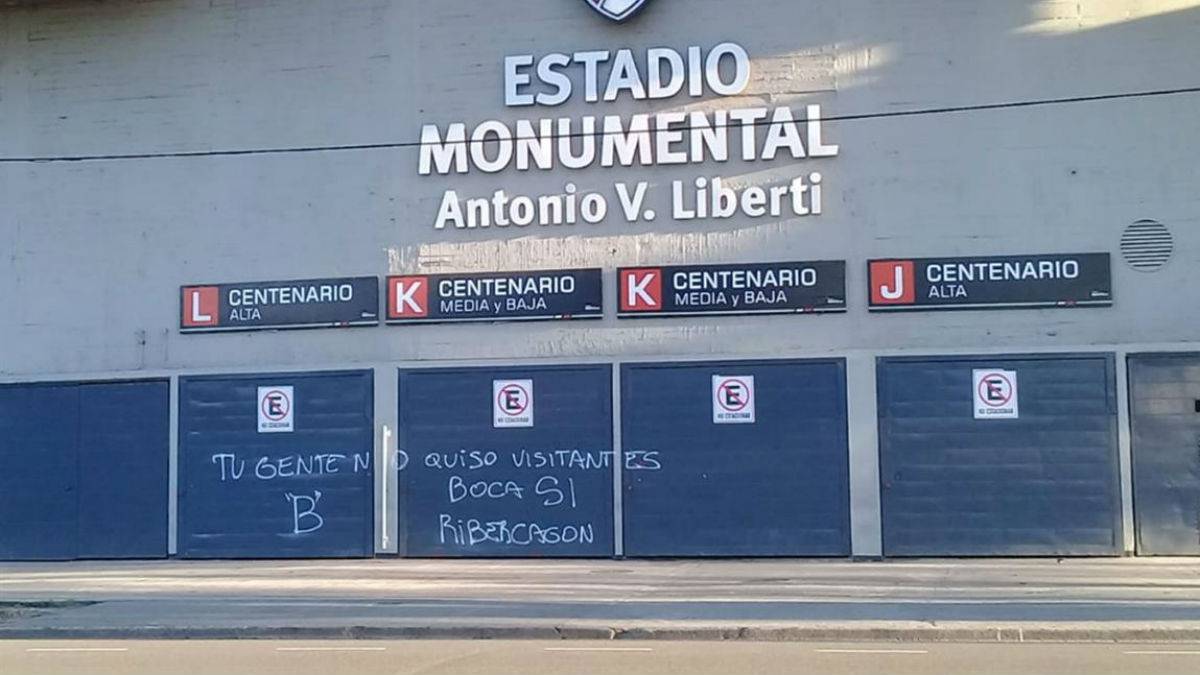 ESTADIO
MONUMENTAL
Antonio V. Liberti
L CENTENARIO
ALTA
K CENTENARIO
MEDIA y BAJA
K CENTENARIO
MEDIA y BAJA
J CENTENARIO
ALTA
E
NO ESTACIONAR
E
NO ESTACIONAR
E
NO ESTACIONAR
E
NO ESTACIONAR
TU GENTE NO QUISO VISITANTES
"B"
BOCA SI
RIBERCAGON